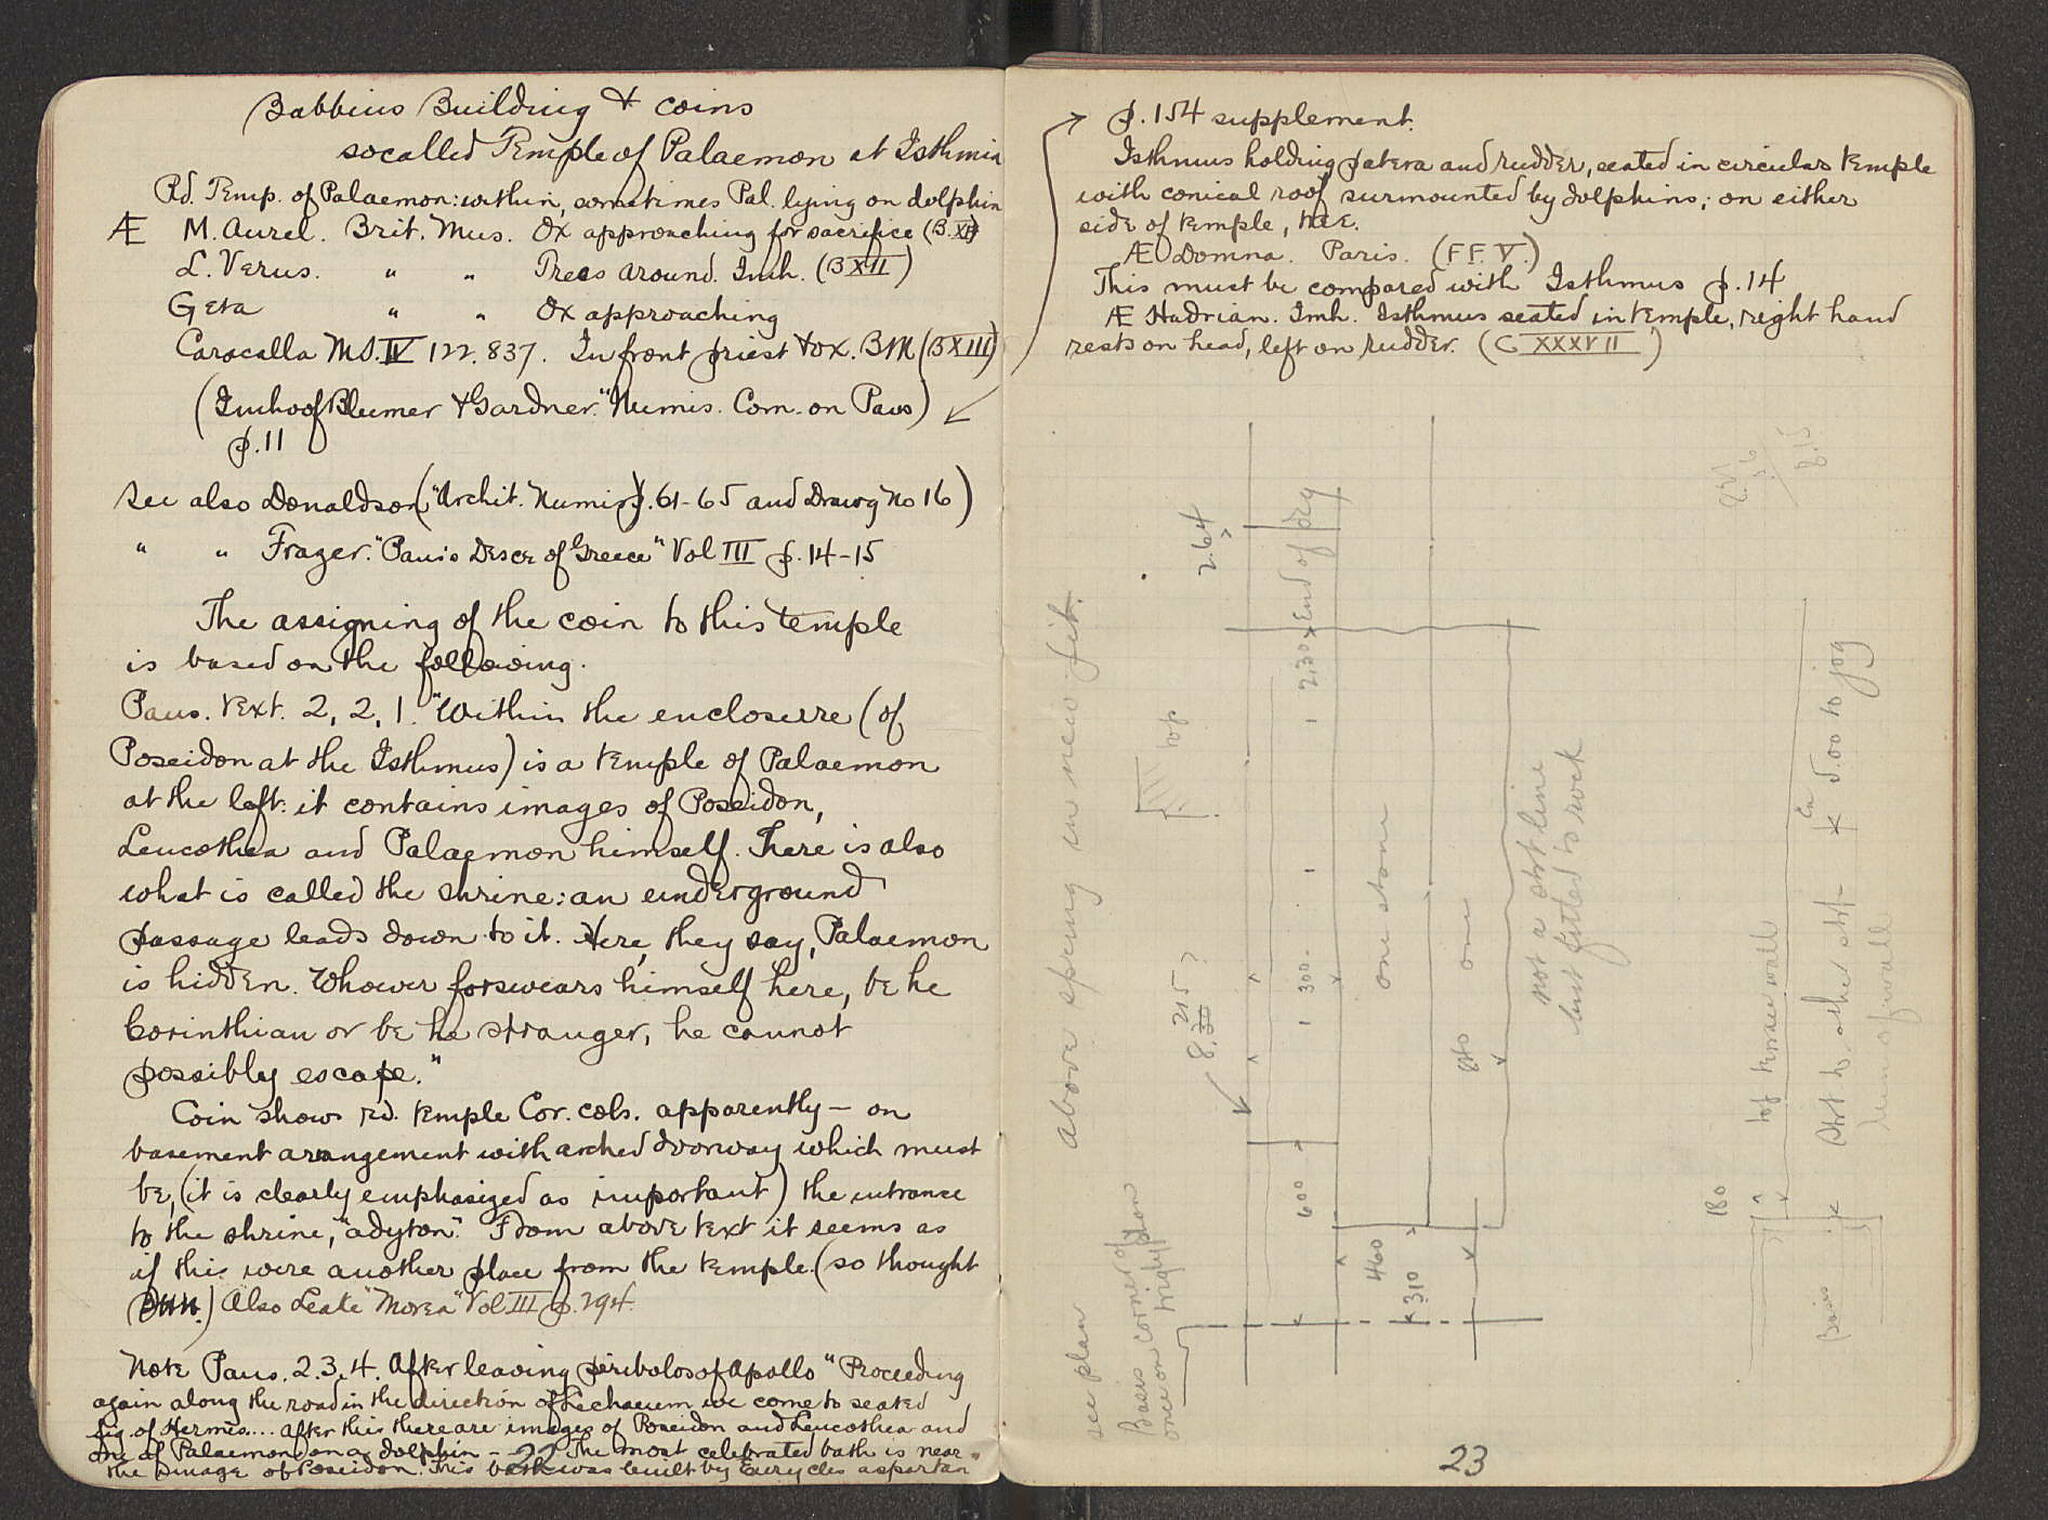 Babbius Building & coins
socalled Temple of Palaemon at Isthmia
Rd. Temp. of Palaemon: within, sometimes Pal. lying on dolphin
Æ M. Aurel. Brit. Mus. Ox approaching for sacrifice (B.XI)
L. Verus. " " Trees around. Imh. (B XII)
Geta " " Ox approaching
Caracalla MS. IV 122. 837. In front priest & ox. BM (B XIII)
(Imhoof Blumer & Gardner. "Numis. Com. on Paus)
p. 11
See also Donaldson ("Archit. Numis) p. 61-65 and Drawg No 16)
" " Frazer. "Paus's Desce of Greece" Vol III p. 14-15
The assigning of the coin to this temple
is based on the following.
Paus. text. 2, 2, 1. "Within the enclosure (of
Poseidon at the Isthmus) is a temple of Palaemon
at the left: it contains images of Poseidon,
Leucothea and Palaemon himself. There is also
what is called the shrine: an underground
passage leads down to it. Here, they say, Palaemon
is hidden. Whoever forswears himself here, be he
Corinthian or be he stranger, he cannot
possibly escape."
Coin shows rd. temple Cor. cols. apparently — on
basement arrangement with arched doorway which must
be, (it is clearly emphasized as important) the entrance
to the shrine, "adyton". From above text it seems as
if this were another place from the temple. (so thought
) Also Leake "Morea" Vol III p. 294.
Note Paus. 2.3.4. After leaving peribolos of Apollo "Proceeding
again along the road in the direction of Lechaeum we come to seated
fig. of Hermes.... After this there are images of Poseidon and Leucothea and
one of Palaemon on a dolphin – The most celebrated bath is near
the image of Poseidon. This bath was built by Eurycles a spartan"
22
p. 154 supplement.
Isthmus holding patera and rudder, seated in circular temple
with conical roof surmounted by dolphins; on either
side of temple, tree.
Æ Domna. Paris. (FF. V.)
This must be compared with Isthmus p. 14
Æ Hadrian. Imh. Isthmus seated in temple, right hand
rests on head, left on rudder. (C XXXVII)
above spring in new fit.
see plan
Basis corner of
one on right
top
2.64
8.215?
End of
1 230
1
300
1
600
one stone
460
310
one
not a strt line
but fitted to rock
8.15
180
top terrace wall
5.00 to jog
Strt to other strt
line of wall
Basis
23